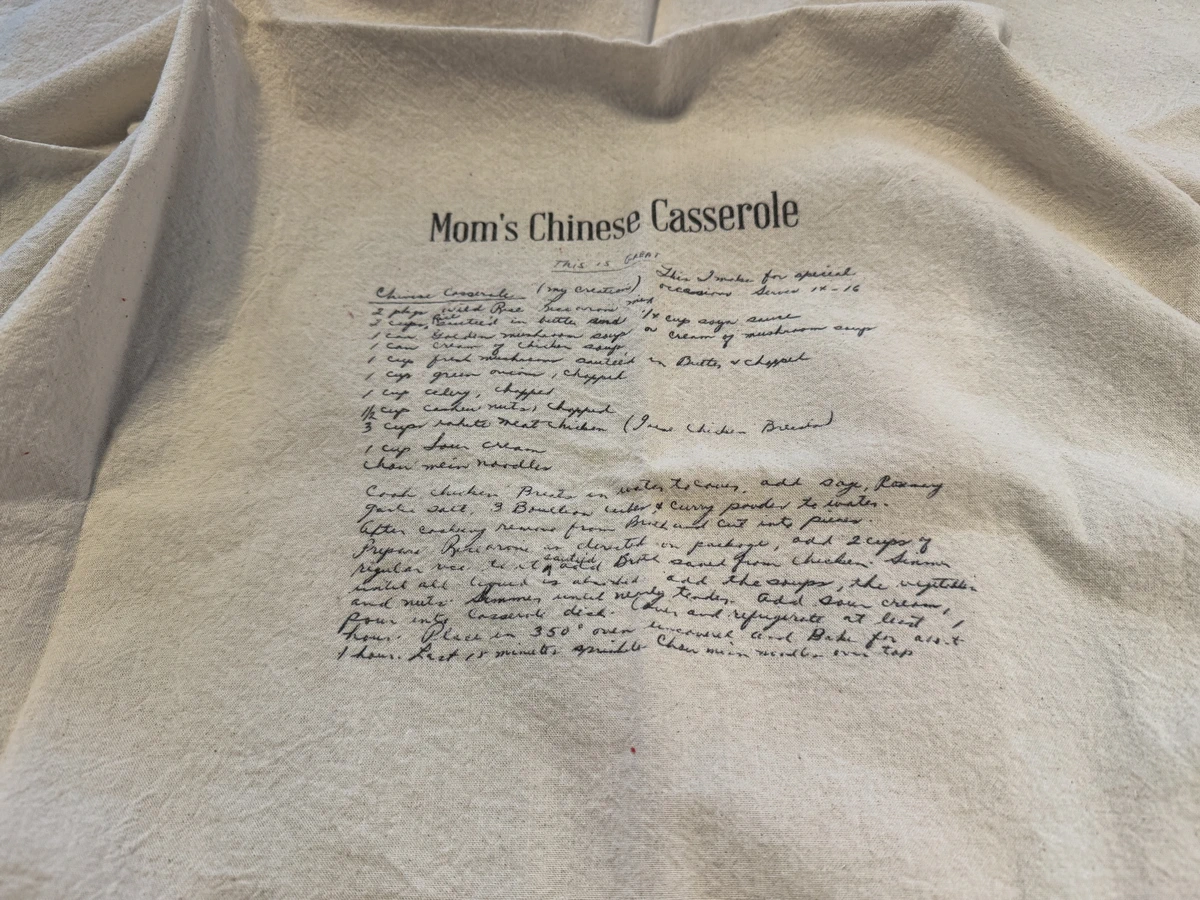 Mom's Chinese Casserole
This is Great
Chinese Casserole (my creation) This I make for special
occasions Serves 14-16
2 pkgs Wild Rice Macaroni mix
2 cups Rice sauteéd in butter and 1/4 cup soya sauce
1 can Golden mushroom soup or cream of mushroom soup
1 can cream of chicken soup
1 cup fresh mushroom sauteéd in Butter & chopped
1 cup green onion, chopped
1 cup celery, chopped
1/2 cup cashew nuts, chopped
3 cups white meat chicken (I use Chicken Breasts)
1 cup Sour cream
Chow mein noodles
Cook chicken Breasts in water to cover, add sage, Rosemary
garlic salt, 3 Bouillon cubes & curry powder to water.
After cooking remove from Broth and cut into pieces.
Prepare Ricearoni as directed on package, add 2 cups of
regular rice to it sauteéd add Broth saved from chicken. Simmer
until all liquid is absorbed. add the soups, the vegetables
and nuts. Simmer until nearly tender. Add sour cream,
pour into Casserole dish. Cover and refrigerate at least 1
hour. Place in 350° oven uncovered and Bake for about
1 hour. Last 15 minutes sprinkle Chow mein noodles over top